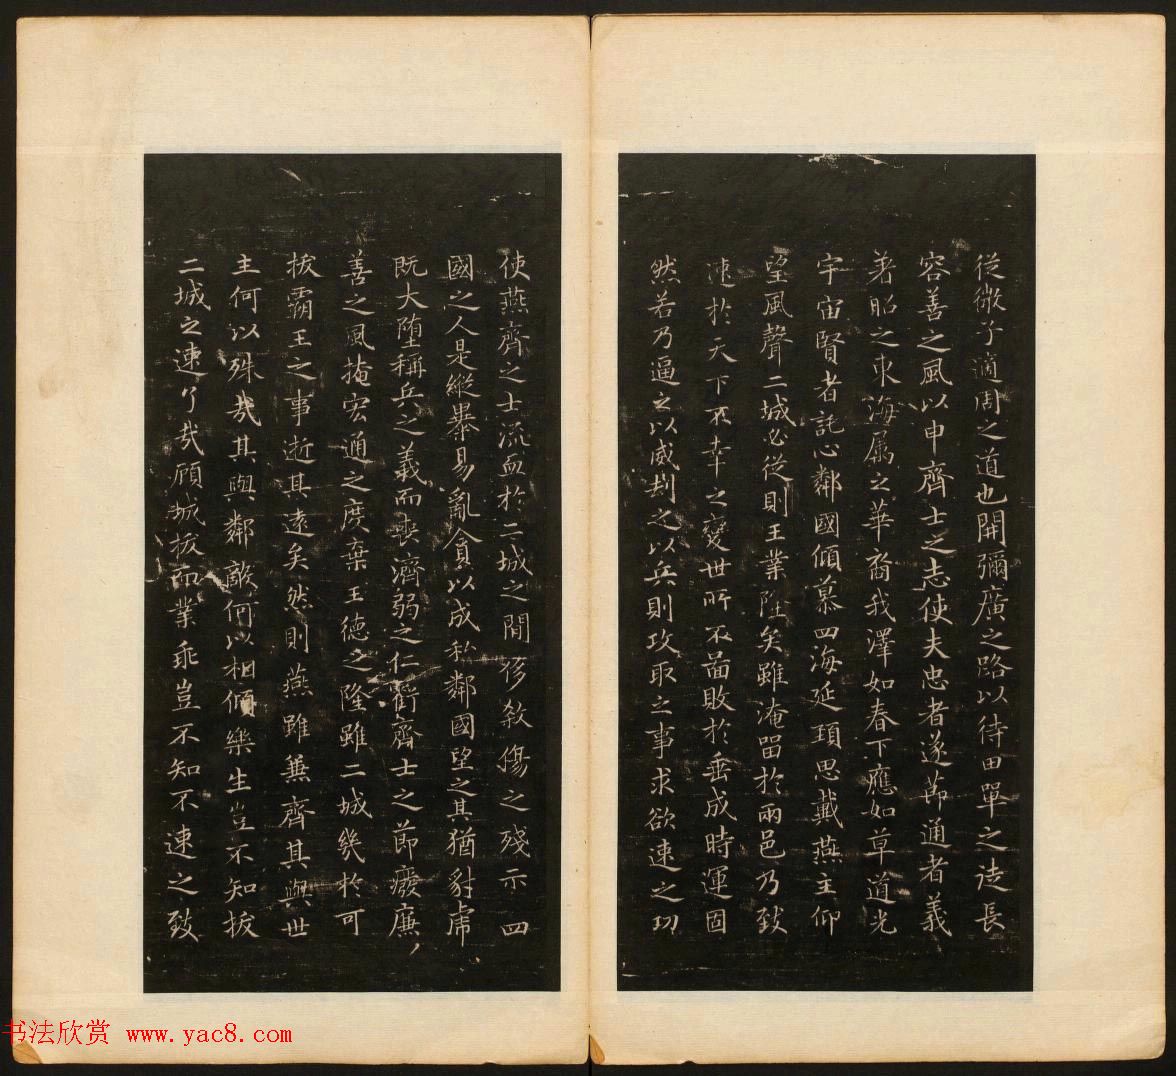 從微子適周之道也開彌廣之路以待田單之徒長
容善之風以申齊士之志使夫忠者遂節通者義
著昭之東海屬之華裔我澤如春下應如草道光
宇宙賢者託心鄰國傾慕四海延頚思戴燕主仰
望風聲二城必從則王業隆矣雖淹留於兩邑乃致
速於天下不幸之變世所不啚敗於垂成時運固
然若乃逼之以威刧之以兵則攻取之事求欲速之功
使燕齊之士流血於二城之閒侈煞傷之殘示四
國之人是縱暴易亂貪以成私鄰國望之其猶豺虎
既大墮稱兵之義而喪濟弱之仁虧齊士之節廢廉
善之風掩宏通之度棄王德之隆雖二城幾於可
拔霸王之事逝其遠矣然則燕雖兼齊其與世
主何以殊哉其與鄰敵何以相傾樂生豈不知拔
二城之速了哉顧城拔而業乖豈不知不速之致
书法欣赏 www.yac8.com